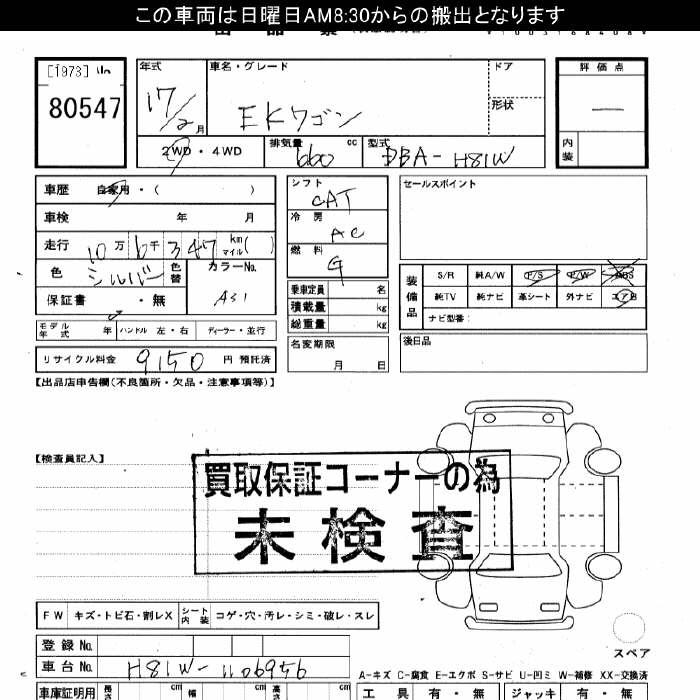 この車両は日曜日AM8:30からの搬出となります
[1973] No
80547
年式
17/2月
車名・グレード
EKワゴン
ドア
形状
評価点
—
内装
2WD・4WD
排気量 660 cc
型式 DBA-H81W
車歴 自家用・( )
車検 年 月
走行 10万6千347 km マイル( )
色 シルバー 色替
カラーNo. A31
保証書 ・無
モデル年式 年 ハンドル 左・右 ディーラー・並行
リサイクル料金 9150 円 預託済
シフト CAT
冷房 AC
燃料 G
乗車定員 名
積載量 kg
総重量 kg
名変期限
月 日
セールスポイント
装備品
S/R 純A/W P/S P/W ABS
純TV 純ナビ 革シート 外ナビ エアB
ナビ型番:
後日品
【出品店申告欄(不良箇所・欠品・注意事項等)】
【検査員記入】
買取保証コーナーの為
未検査
FW キズ・トビ石・割レX シート内装 コゲ・穴・汚レ・シミ・破レ・スレ
登録No.
車台No. H81W-1106956
スペア
A-キズ C-腐食 E-エクボ S-サビ U-凹ミ W-補修 XX-交換済
車庫証明用 長さ cm 幅 cm 高さ cm
工具 有・無 ジャッキ 有・無